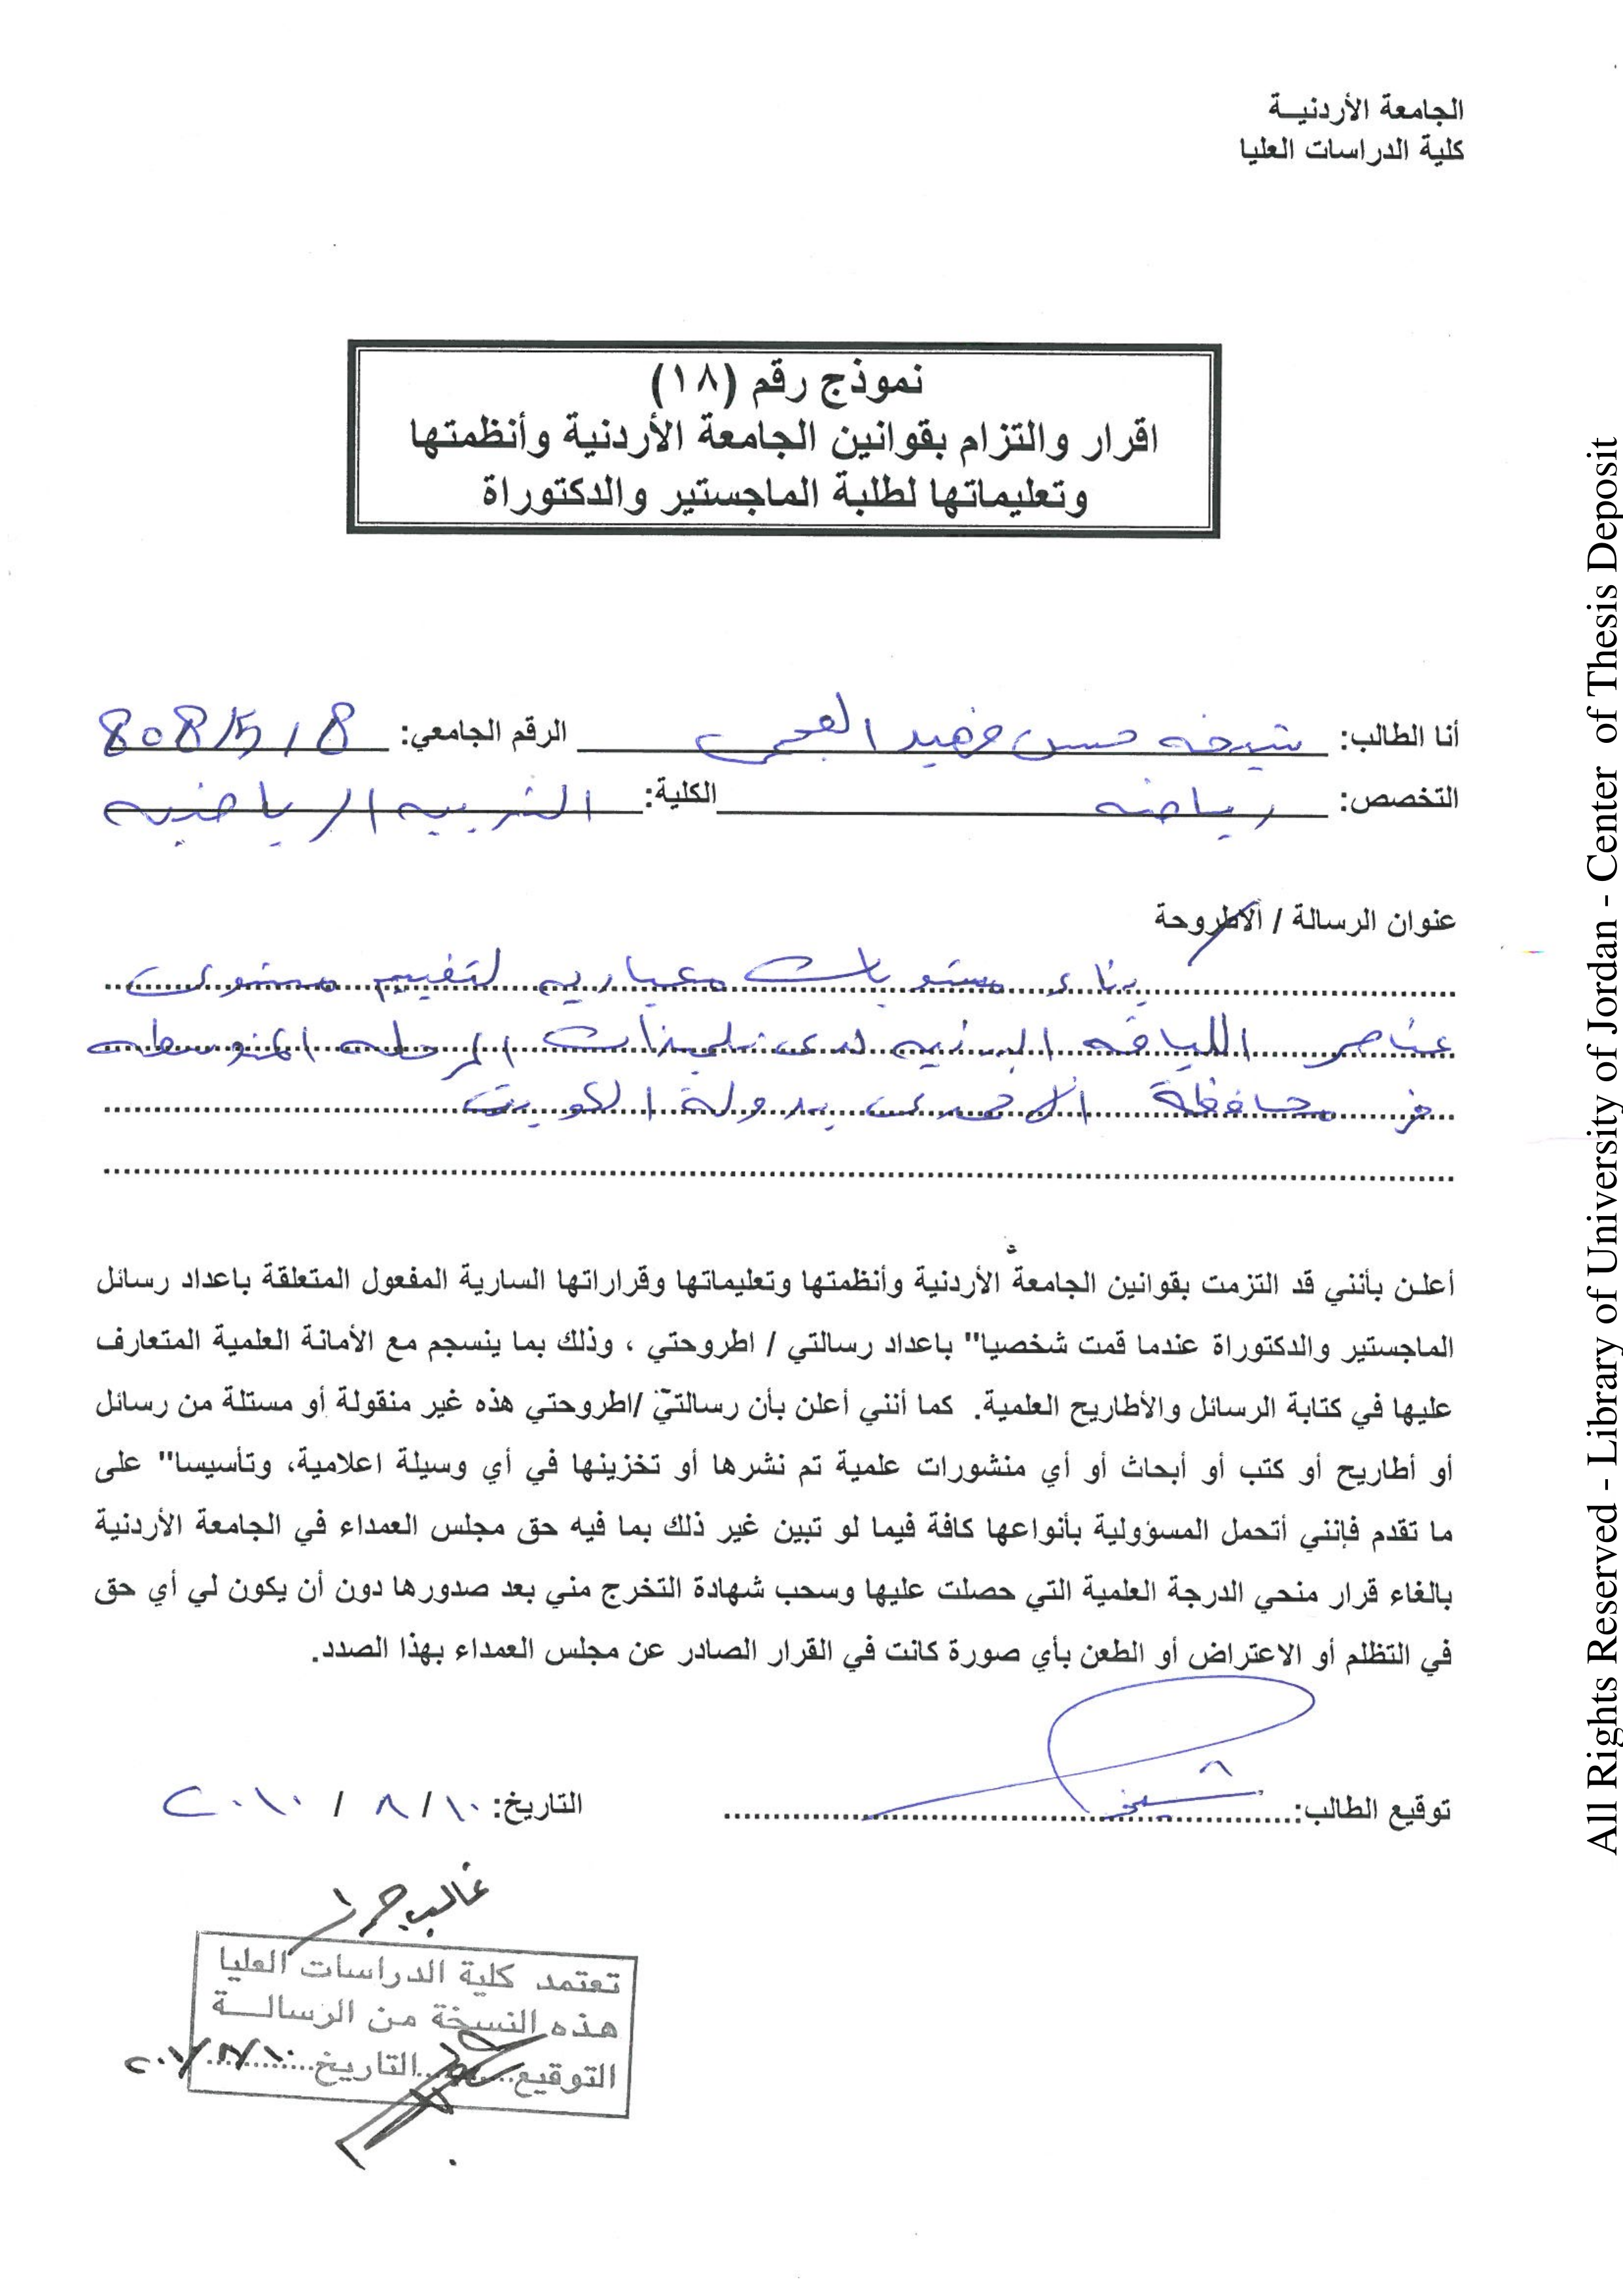 الجامعة الأردنيــة
كلية الدراسات العليا
نموذج رقم (١٨)
اقرار والتزام بقوانين الجامعة الأردنية وأنظمتها
وتعليماتها لطلبة الماجستير والدكتوراة
أنا الطالب: شيخه حسن فهيد العجمي الرقم الجامعي:
التخصص: رياضه الكلية: التربيه الرياضيه
عنوان الرسالة / الاطروحة
بناء مستويات معياريه لتقييم مستوى
عناصر اللياقه البدنيه لدى تلميذات المرحله المتوسطه
في محافظة الاحمدي بدولة الكويت
أعلن بأنني قد التزمت بقوانين الجامعة الأردنية وأنظمتها وتعليماتها وقراراتها السارية المفعول المتعلقة باعداد رسائل
الماجستير والدكتوراة عندما قمت شخصيا" باعداد رسالتي / اطروحتي ، وذلك بما ينسجم مع الأمانة العلمية المتعارف
عليها في كتابة الرسائل والأطاريح العلمية. كما أنني أعلن بأن رسالتي /اطروحتي هذه غير منقولة أو مستلة من رسائل
أو أطاريح أو كتب أو أبحاث أو أي منشورات علمية تم نشرها أو تخزينها في أي وسيلة اعلامية، وتأسيسا" على
ما تقدم فإنني أتحمل المسؤولية بأنواعها كافة فيما لو تبين غير ذلك بما فيه حق مجلس العمداء في الجامعة الأردنية
بالغاء قرار منحي الدرجة العلمية التي حصلت عليها وسحب شهادة التخرج مني بعد صدورها دون أن يكون لي أي حق
في التظلم أو الاعتراض أو الطعن بأي صورة كانت في القرار الصادر عن مجلس العمداء بهذا الصدد.
توقيع الطالب: شيخه التاريخ: ١٠/ ٨ / ٢٠١٠
تعتمد كلية الدراسات العليا
هذه النسخة من الرسالــة
التوقيع.......التاريخ ١٠/٨/٢٠١٠
All Rights Reserved - Library of University of Jordan - Center of Thesis Deposit